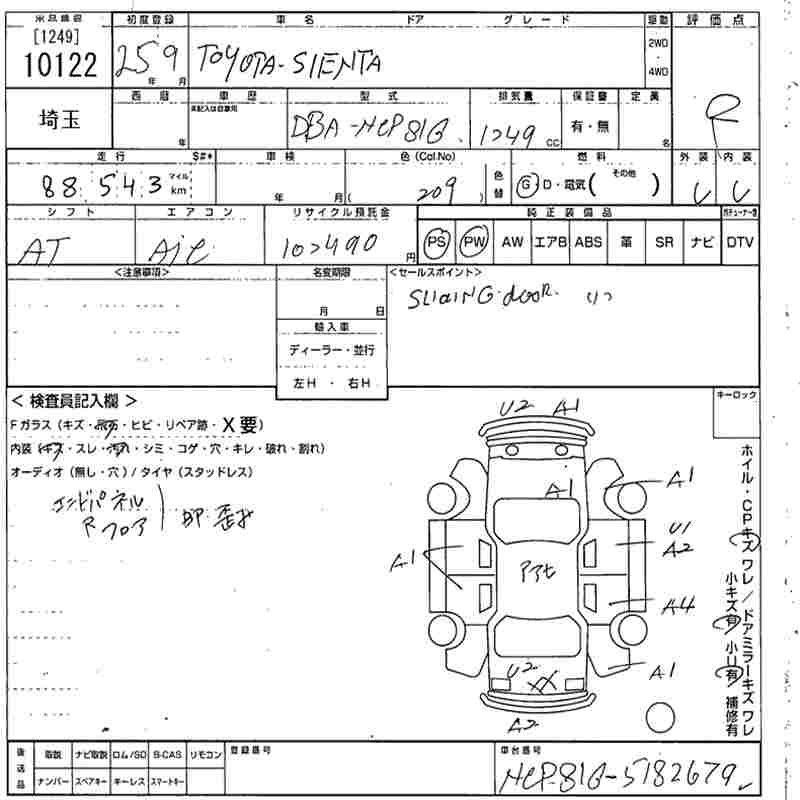 出品番号 初度登録 車名 ドア グレード 駆動 評価点
[1249]
10122 259 年 月 TOYOTA-SIENTA 2WD・4WD R
埼玉 西暦 年 車歴 未記入は自家用 型式 DBA-NCP81G 排気量 1249 CC 保証書 有・無 定員 名
走行 S#* 車検 色(Col.No) 燃料 外装 内装
88,543 マイル km 年 月( 209 ) 色替 G D・電気( その他 )
シフト エアコン リサイクル預託金 純正装備品
AT 10490 円 PS PW AW エアB ABS 革 SR ナビ DTV
<注意事項> 名変期限 <セールスポイント>
月 日 SLIDING・dOOR.
輸入車
ディーラー・並行
左H・右H
<検査員記入欄> キーロック
Fガラス(キズ・ ・ヒビ・リペア跡・X要)
内装(キズ・スレ・汚れ・シミ・コゲ・穴・キレ・破れ・割れ)
オーディオ(無し・穴)/タイヤ(スタッドレス)
エンドパネル
Rフロア
U2 A1
A1
A1
U1
A2
A1
A4
U2
XX
A1
A2
ホイル・CPキズ ワレ/ドアミラーキズ ワレ
小キズ有 小U有 補修有
後送品 取説 ナビ取説 ロム/SD B-CAS リモコン 登録番号 車台番号
ナンバー スペアキー キーレス スマートキー NCP81G-5182679